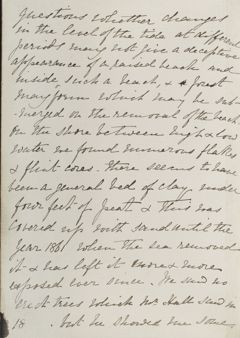 questions whether changes
in the level of the tide at different
periods may not give a deceptive
appearance of a raised beach and
inside such a beach, & a forest
may form which may be sub-
merged on the removal of the beach
On the shore between high & low
water we found numerous flakes
& flint cores. there seems to have
been a general bed of clay under
four feet of peat & this was
covered up with sand until the
year 1861 when the sea removed
it & has left it more & more
exposed ever since. We saw no
erect trees which Mr Hall saw in
18 . but he showed me some